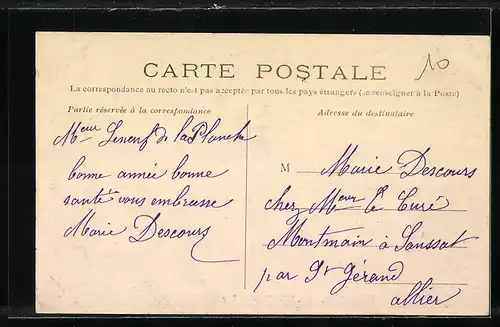 10
CARTE POSTALE
La correspondance au recto n'est pas acceptée par tous les pays étrangers (se renseigner à la Poste)
Partie réservée à la correspondance
Adresse du destinataire
Meur de la Planche
bonne année bonne
santé vous embrasse
Marie Descours
M Marie Descours
chez Meur le Curé
Montmain à Sanssat
par St Gérand
allier